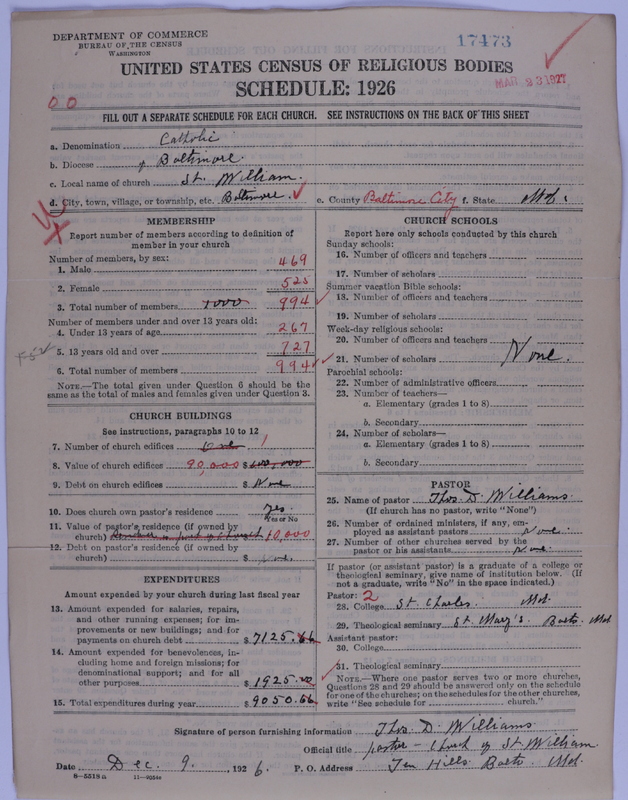 DEPARTMENT OF COMMERCE
BUREAU OF THE CENSUS
WASHINGTON
17473
MAR 23 1927
UNITED STATES CENSUS OF RELIGIOUS BODIES
SCHEDULE: 1926
00
FILL OUT A SEPARATE SCHEDULE FOR EACH CHURCH. SEE INSTRUCTIONS ON THE BACK OF THIS SHEET
a. Denomination Catholic
b. Diocese of Baltimore.
c. Local name of church St. William.
d. City, town, village, or township, etc. Baltimore. e. County Baltimore City f. State Md.
MEMBERSHIP
Report number of members according to definition of
member in your church
Number of members, by sex:
1. Male 469
2. Female 525
3. Total number of members 1000 994
Number of members under and over 13 years old:
4. Under 13 years of age 267
5. 13 years old and over 727
6. Total number of members 994
NOTE.—The total given under Question 6 should be
same as the total of males and females given under Question 3.
CHURCH BUILDINGS
See instructions, paragraphs 10 to 12
7. Number of church edifices one 1
8. Value of church edifices 90,000 $100,000
9. Debt on church edifices $None
10. Does church own pastor's residence Yes.
Yes or No
11. Value of pastor's residence (if owned by
church) part of church 10,000
12. Debt on pastor's residence (if owned by
church) $None.
EXPENDITURES
Amount expended by your church during last fiscal year
13. Amount expended for salaries, repairs,
and other running expenses; for im-
provements or new buildings; and for
payments on church debt $7125.66
14. Amount expended for benevolences, in-
cluding home and foreign missions; for
denominational support; and for all
other purposes $1925.00
15. Total expenditures during year $9050.66
CHURCH SCHOOLS
Report here only schools conducted by this church
Sunday schools:
16. Number of officers and teachers
17. Number of scholars
Summer vacation Bible schools:
18. Number of officers and teachers
19. Number of scholars
Week-day religious schools:
20. Number of officers and teachers
21. Number of scholars None.
Parochial schools:
22. Number of administrative officers
23. Number of teachers—
a. Elementary (grades 1 to 8)
b. Secondary
24. Number of scholars—
a. Elementary (grades 1 to 8)
b. Secondary
PASTOR
25. Name of pastor Thos. D. Williams.
(If church has no pastor, write "None")
26. Number of ordained ministers, if any, em-
ployed as assistant pastors None.
27. Number of other churches served by the
pastor or his assistants None.
If pastor (or assistant pastor) is a graduate of a college or
theological seminary, give name of institution below. (If
not a graduate, write "No" in the space indicated.)
Pastor: 2
28. College St Charles. Md.
29. Theological seminary St. Mary's. Balto. Md
Assistant pastor:
30. College
31. Theological seminary
NOTE.—Where one pastor serves two or more churches,
Questions 28 and 29 should be answered only on the schedule
for one of the churches; on the schedules for the other churches,
write "See schedule for church."
Signature of person furnishing information Thos. D. Williams
Official title pastor - Church of St William.
Date Dec. 9, 1926. P. O. Address Ten Hills Balto. Md.
8—5518 a 11—9054